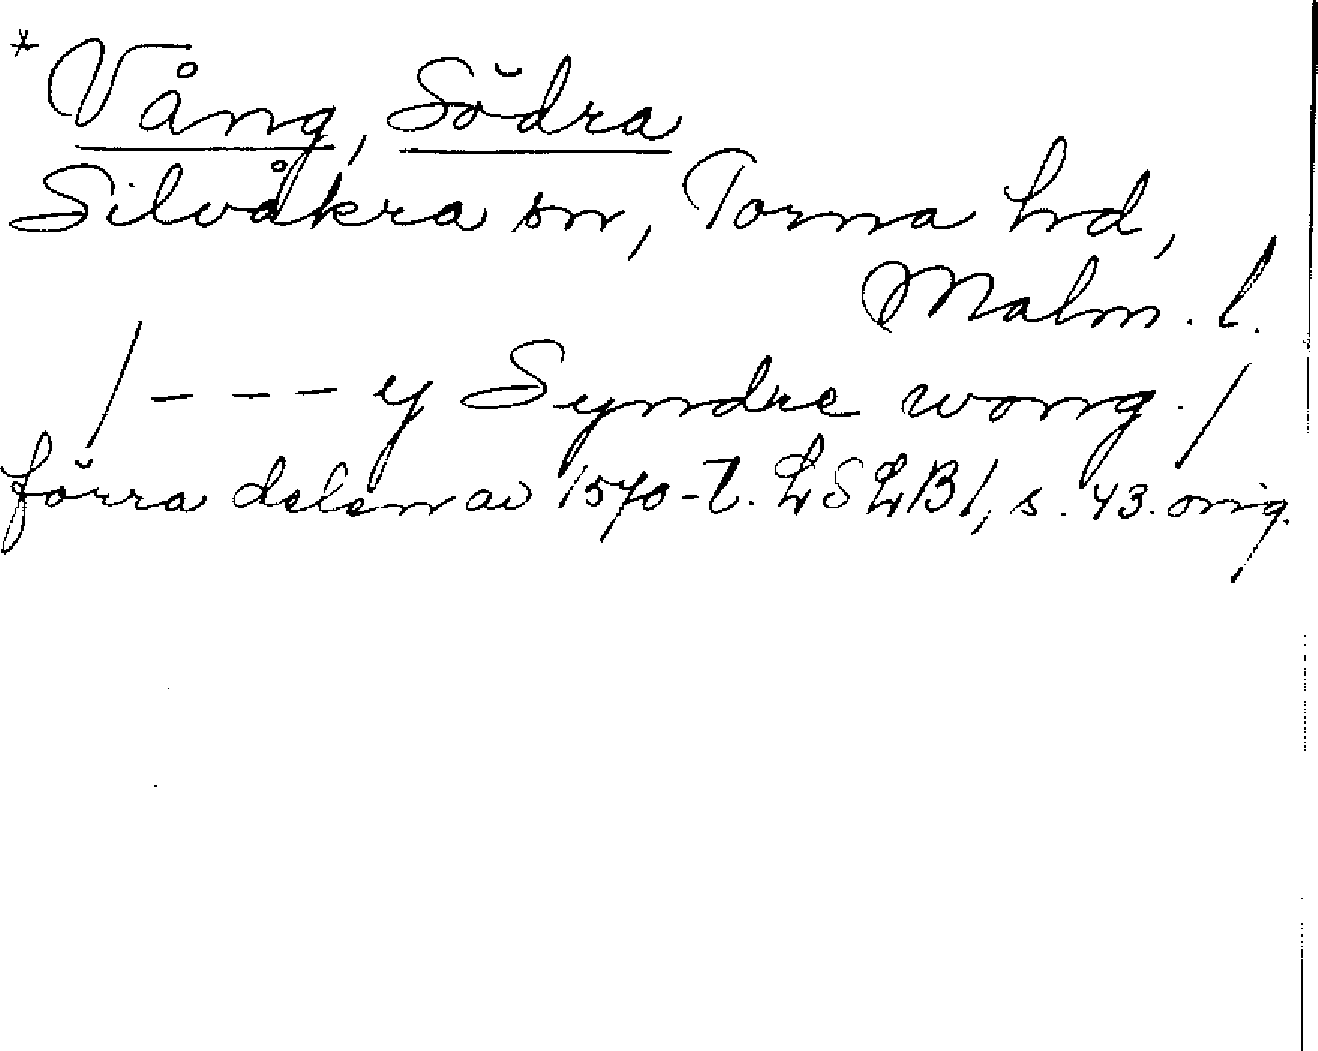 *Vång, Södra
Silvåkra sn, Torna hd,
Malm. l.
/ - - - y Syndre wong. /
förra delen av 1570-t. LSLB1, s. 43. orig.